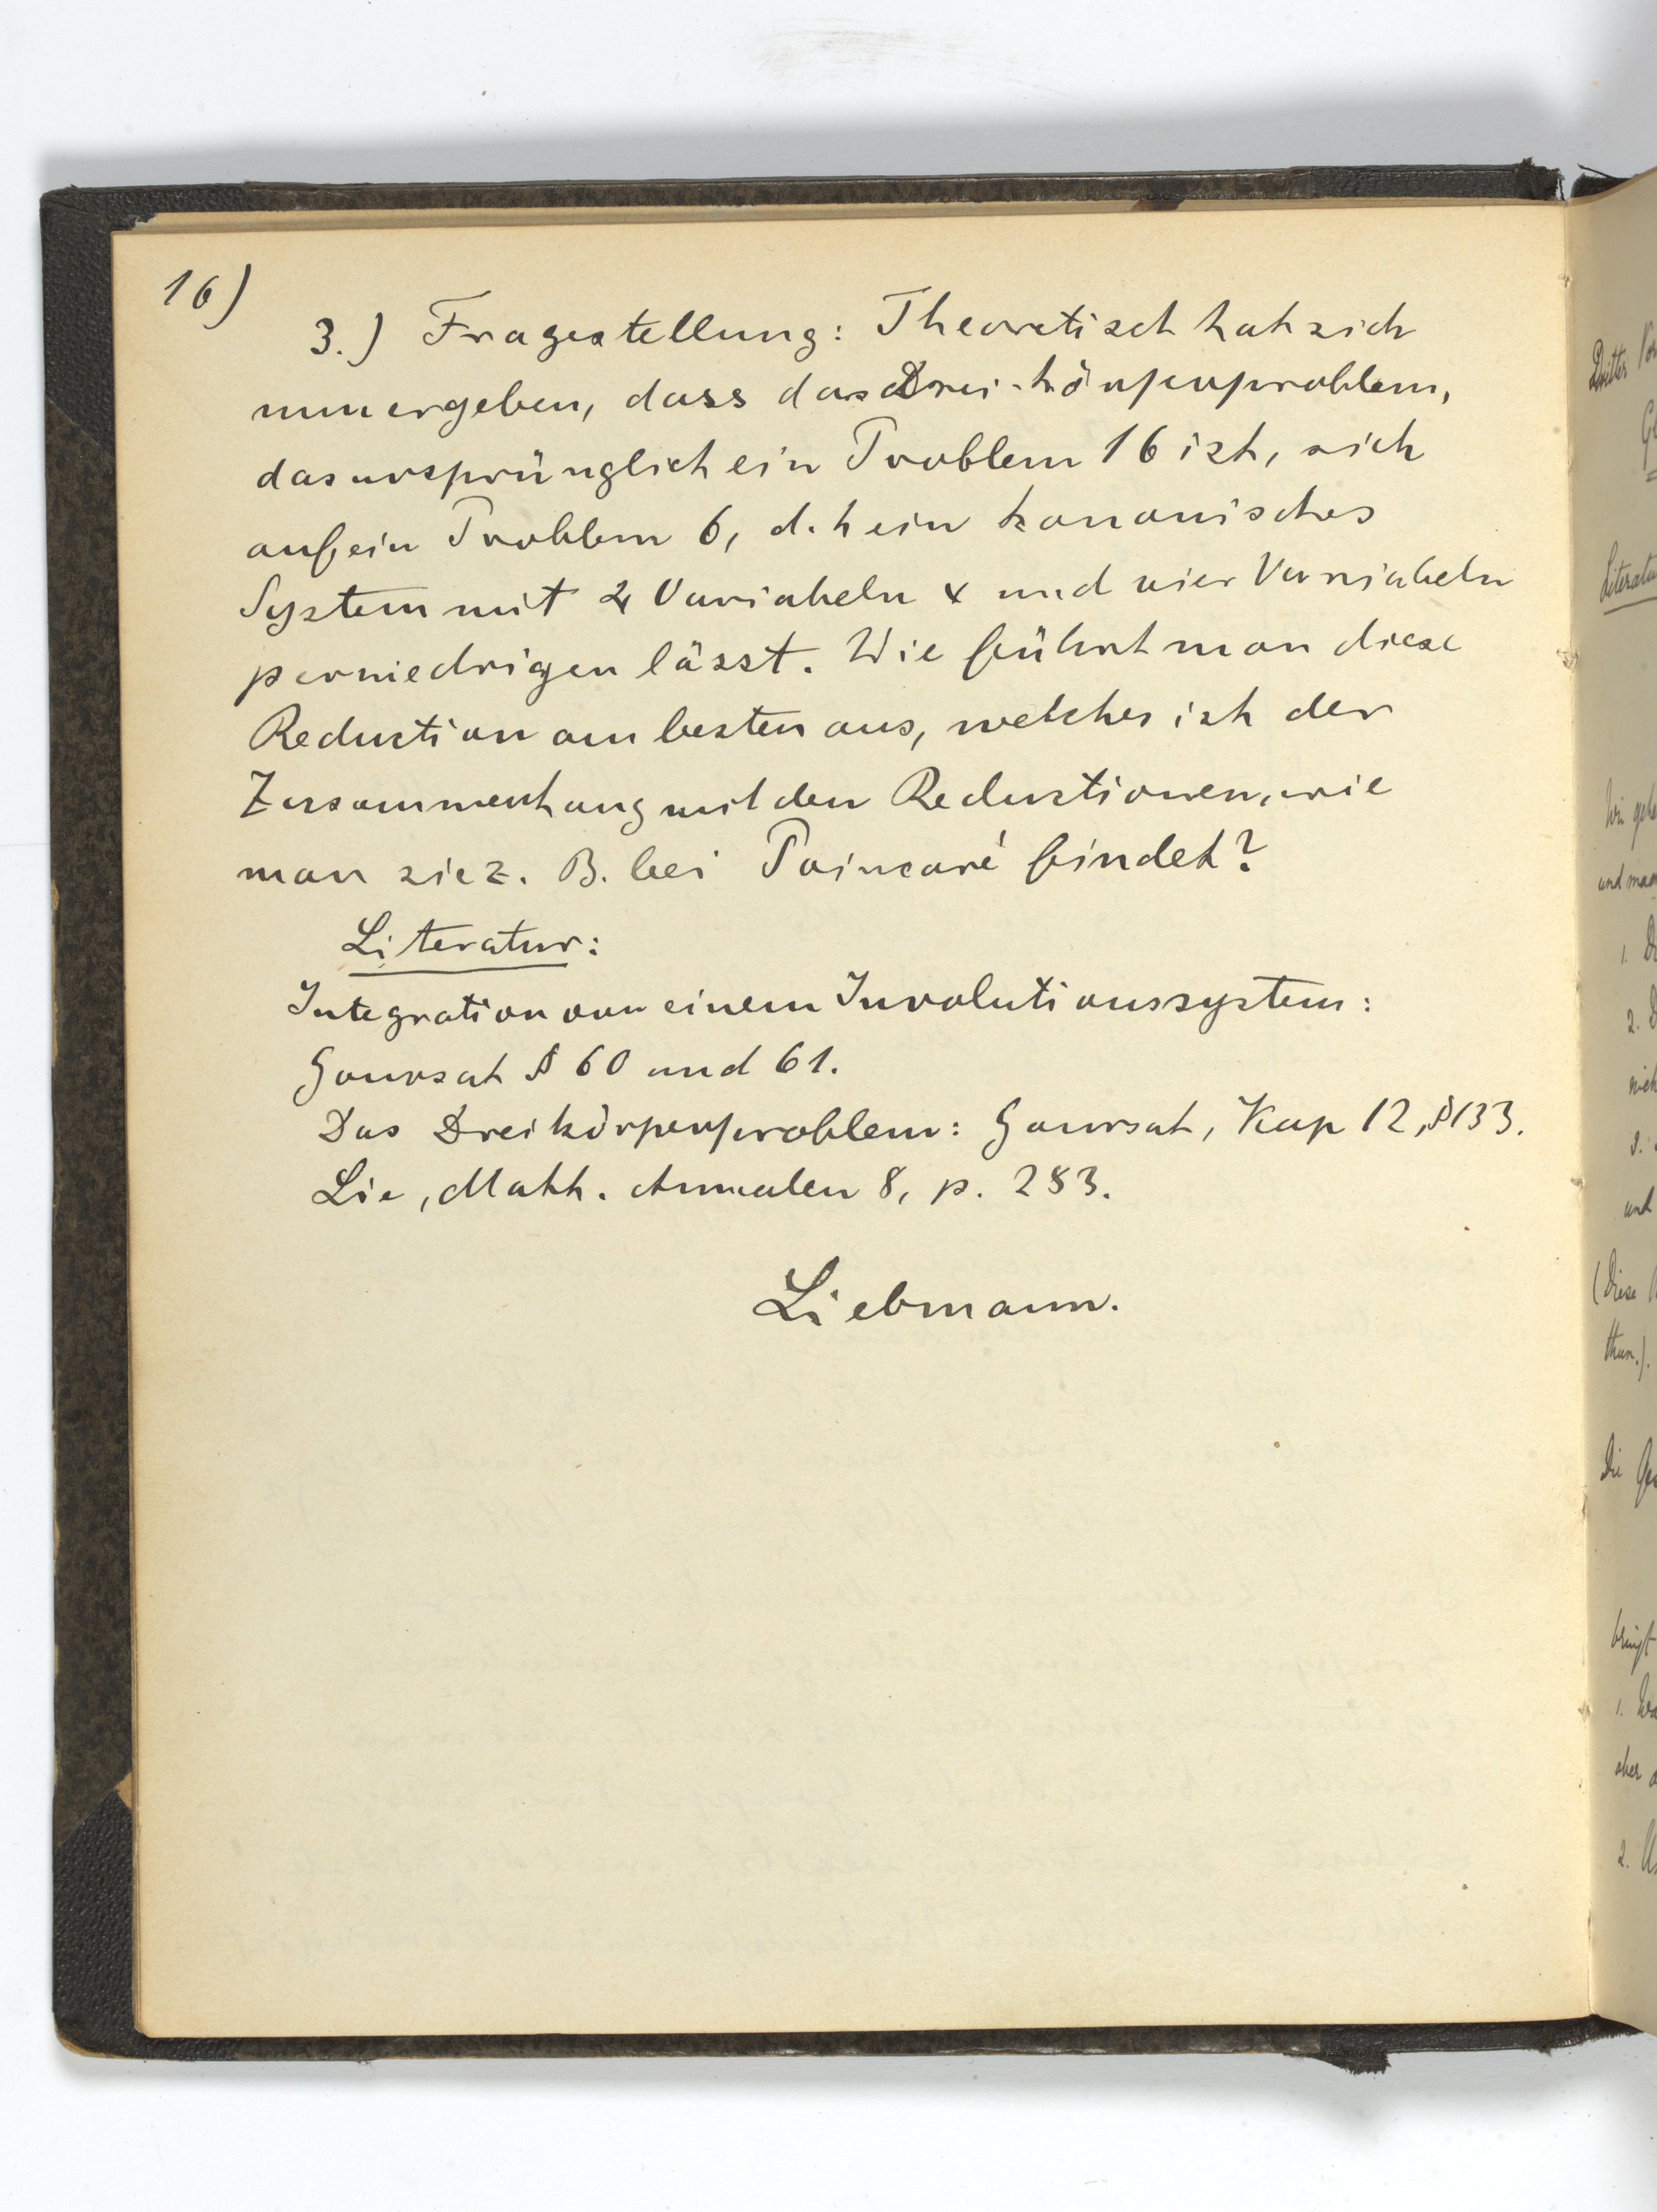 16)
3.) Fragestellung: Theoretisch hat sich
nun ergeben, dass das Drei-körperproblem,
das ursprünglich ein Problem 16 ist, sich
auf ein Problem 6, d. h ein kanonisches
System mit 4 Variabeln x und vier Variabeln
p erniedrigen lässt. Wie führt man diese
Reduction am besten aus, welches ist der
Zusammenhang mit den Reductionen, wie
man sie z. B. bei Poincaré findet?
Literatur:
Integration von einem Involutionssystem:
Goursat § 60 und 61.
Das Dreikörperproblem: Goursat, Kap 12, § 133.
Lie, Math. Annalen 8, p. 283.
Liebmann.
Dritter
Literatur
Wir gehe
und man
1.
2.
3.
und
(Diese
thun.).
Die
bringt
1.
aber
2.